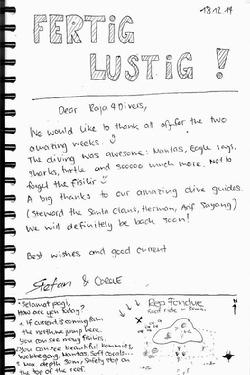 18.12.14
FERTIG
LUSTIG!
Dear Raja4Divers,
We would like to thank all of for the two
amazing weeks.
The diving was awesome: Mantas, Eagle rays,
sharks, turtle and sooooo much more. Not to
forget the fishis
A big thanks to our amazing dive guides.
(Steward the Santa Claus, Herman, Arif Sayang)
We will definitely be back soon!
Best wishes and good current
Stefan & Carole
Selamat pagi,
How are you today?
If current is coming from
you can see many fishies,
you can see beautiful
wobbegong, Mantas, Soft corals...
max. depth 30m, Safety stop on
the top of the reef.